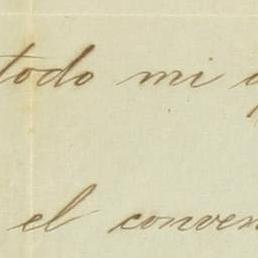 todo mi
el conven